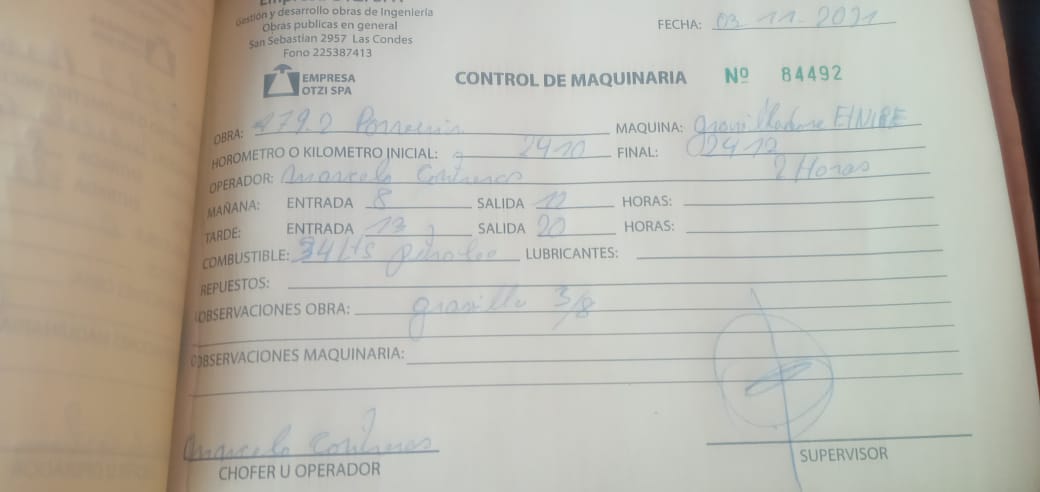 Gestión y desarrollo obras de Ingeniería
Obras publicas en general
San Sebastian 2957 Las Condes
Fono 225387413
FECHA: 03 11 2021
EMPRESA
OTZI SPA
CONTROL DE MAQUINARIA Nº 84492
OBRA: MAQUINA:
HOROMETRO O KILOMETRO INICIAL: 2410 FINAL: 02412
2 Horas
OPERADOR: Marcelo Contreras
MAÑANA: ENTRADA 8 SALIDA 12 HORAS:
TARDE: ENTRADA 13 SALIDA 20 HORAS:
COMBUSTIBLE: 34 Lts petroleo LUBRICANTES:
REPUESTOS:
OBSERVACIONES OBRA: gravilla 3/8
OBSERVACIONES MAQUINARIA:
Marcelo Contreras
CHOFER U OPERADOR
SUPERVISOR